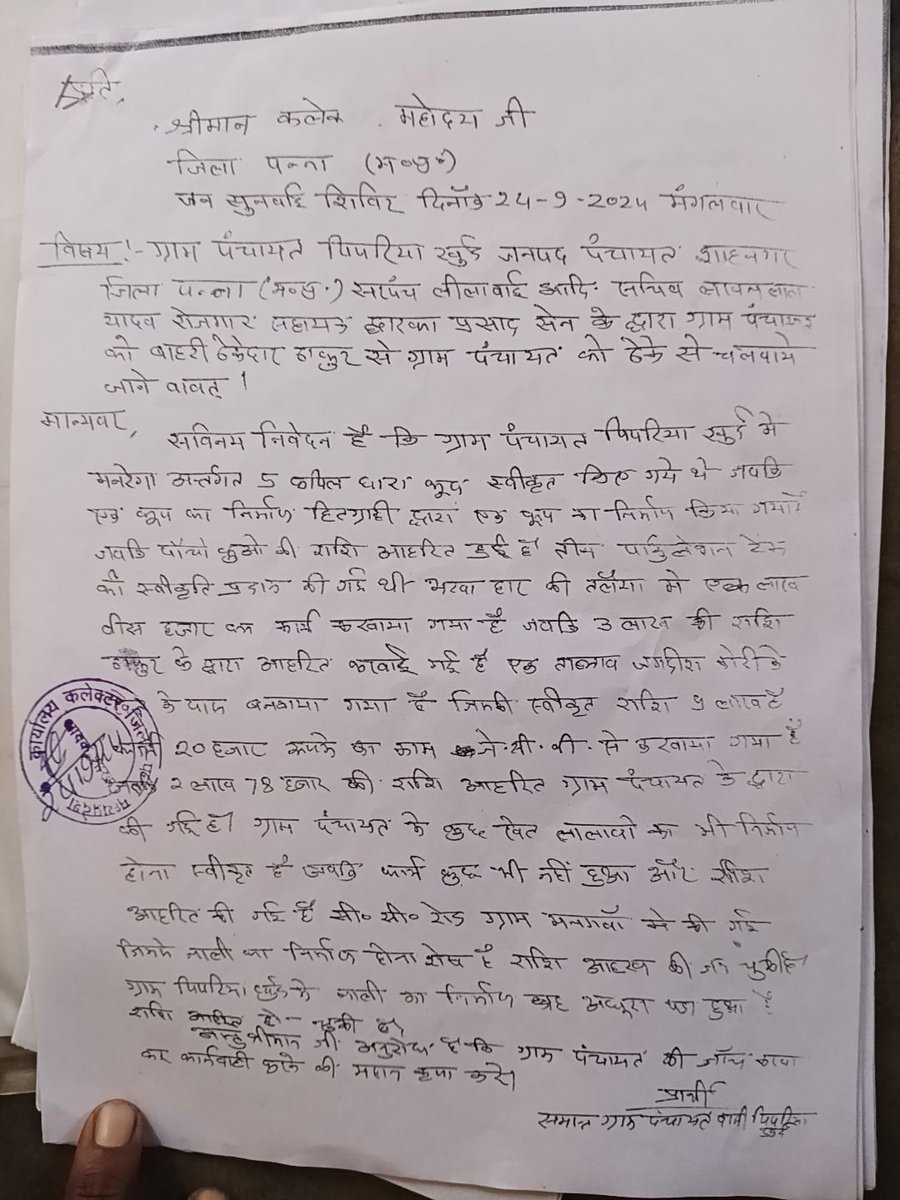 प्रति,
श्रीमान कलेक. महोदय जी
जिला पन्ना (म०प्र०)
जन सुनवाई शिविर दिनाँक 24-9-2024 मंगलवार
विषय!- ग्राम पंचायत पिपरिया खुर्द जनपद पंचायत शाहनगर
जिला पन्ना (म०प्र०) सरपंच लीलाबाई आदि सचिव लाल
यादव रोजगार सहायक द्वारका प्रसाद सेन के द्वारा ग्राम पंचायत
को बाहरी ठेकेदार ठाकुर से ग्राम पंचायत को ठेके से चलवाये
जाने वावत्।
मान्यवर,
सविनय निवेदन है कि ग्राम पंचायत पिपरिया खुर्द में
मनरेगा अर्न्तगत 5 कपिल धारा कूप स्वीकृत किए गये थे जबकि
एक कूप का निर्माण हितग्राही द्वारा एक कूप का निर्माण किया गया है
जबकि पाँचो कुओ की राशि आहरित हुई है तीन टेंक
की स्वीकृति प्रदान की गई थी हार की तलैया मे एक लाख
वीस हजार का कार्य करवाया गया है जबकि 3 लाख की राशि
ठाकुर के द्वारा आहरित करवाई गई है एक तालाव जगदीश कोरी के
के पास बनवाया गया है जिसकी स्वीकृत राशि लाख है
20 हजार रूपये का काम जे.सी.वी. से करवाया गया है
जबकि 2 लाख 78 हजार की राशि आहरित ग्राम पंचायत के द्वारा
की गई है। ग्राम पंचायत के कुछ खेत तालावो का भी निर्माण
होना स्वीकृत है जबकि कार्य कुछ भी नहीं हुआ और राशि
आहरित की गई है सी० सी० रोड ग्राम मे की गई
जिसके नाली का निर्माण होना शेष है राशि आहरण की जा चुकी है।
ग्राम पिपरिया खुर्द के नाली का निर्माण अधूरा पड़ा हुआ है
राशि आहरित हो चुकी है।
श्रीमान जी अनुरोध है कि ग्राम पंचायत की जाँच करवा
कर कार्यवाही करने की महान कृपा करे।
प्रार्थी
समस्त ग्राम पंचायत वासी पिपरिया
खुर्द
कार्यालय कलेक्टर, जिला पन्ना
मध्यप्रदेश